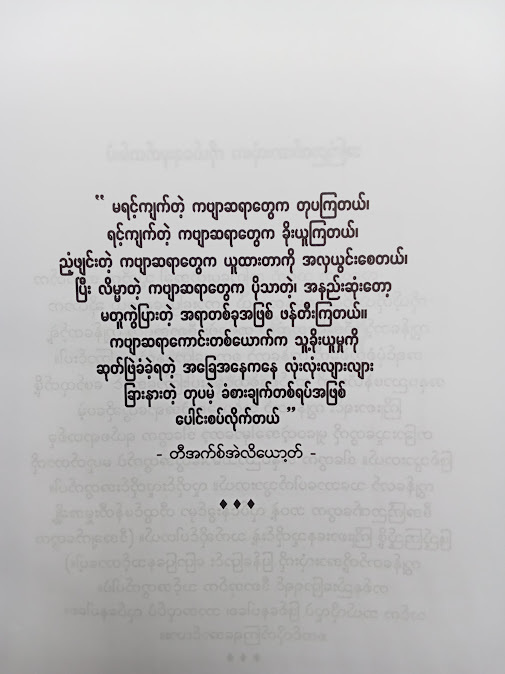 “ မရင့်ကျက်တဲ့ ကဗျာဆရာတွေက တုပကြတယ်၊
ရင့်ကျက်တဲ့ ကဗျာဆရာတွေက ခိုးယူကြတယ်၊
ညံ့ဖျင်းတဲ့ ကဗျာဆရာတွေက ယူထားတာကို အလှယွင်းစေတယ်၊
ပြီး လိမ္မာတဲ့ ကဗျာဆရာတွေက ပိုသာတဲ့၊ အနည်းဆုံးတော့
မတူကွဲပြားတဲ့ အရာတစ်ခုအဖြစ် ဖန်တီးကြတယ်။
ကဗျာဆရာကောင်းတစ်ယောက်က သူ့ခိုးယူမှုကို
ဆုတ်ဖြဲခံခဲ့ရတဲ့ အခြေအနေကနေ လုံးလုံးလျားလျား
ခြားနားတဲ့ တုပမဲ့ ခံစားချက်တစ်ရပ်အဖြစ်
ပေါင်းစပ်လိုက်တယ် ”
- တီအက်စ်အဲလိယော့တ် -